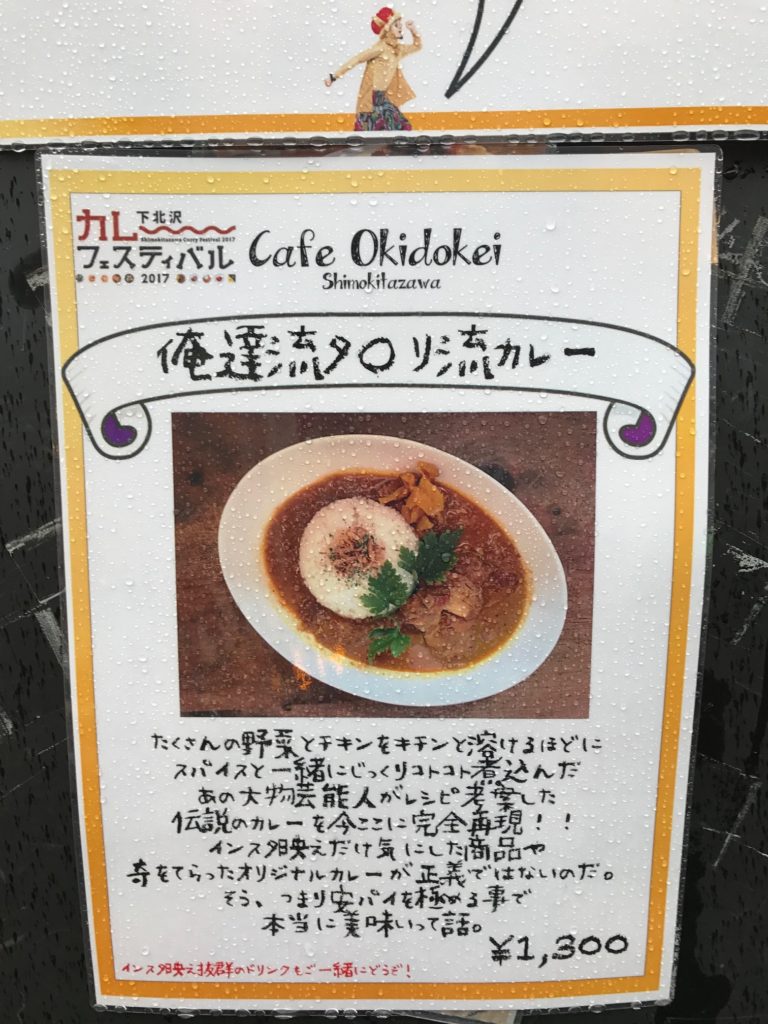 下北沢
Shimokitazawa Curry Festival 2017
カレー
フェスティバル
2017
Cafe Okidokei
Shimokitazawa
俺達流タ〇リ流カレー
たくさんの野菜とチキンをキチンと溶けるほどに
スパイスと一緒にじっくりコトコト煮込んだ
あの大物芸能人がレシピ考案した
伝説のカレーを今ここに完全再現！！
インスタ映えだけ気にした商品や
奇をてらったオリジナルカレーが正義ではないのだ。
そう、つまり安パイを極める事で
本当に美味いって話。
¥1,300
インスタ映え抜群のドリンクもご一緒にどうぞ！